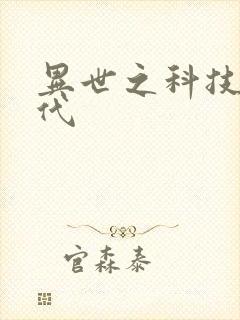 異世之科技
代
官森泰